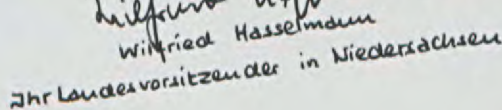 Wilfried Hasselmann
Ihr Landesvorsitzender in Niedersachsen